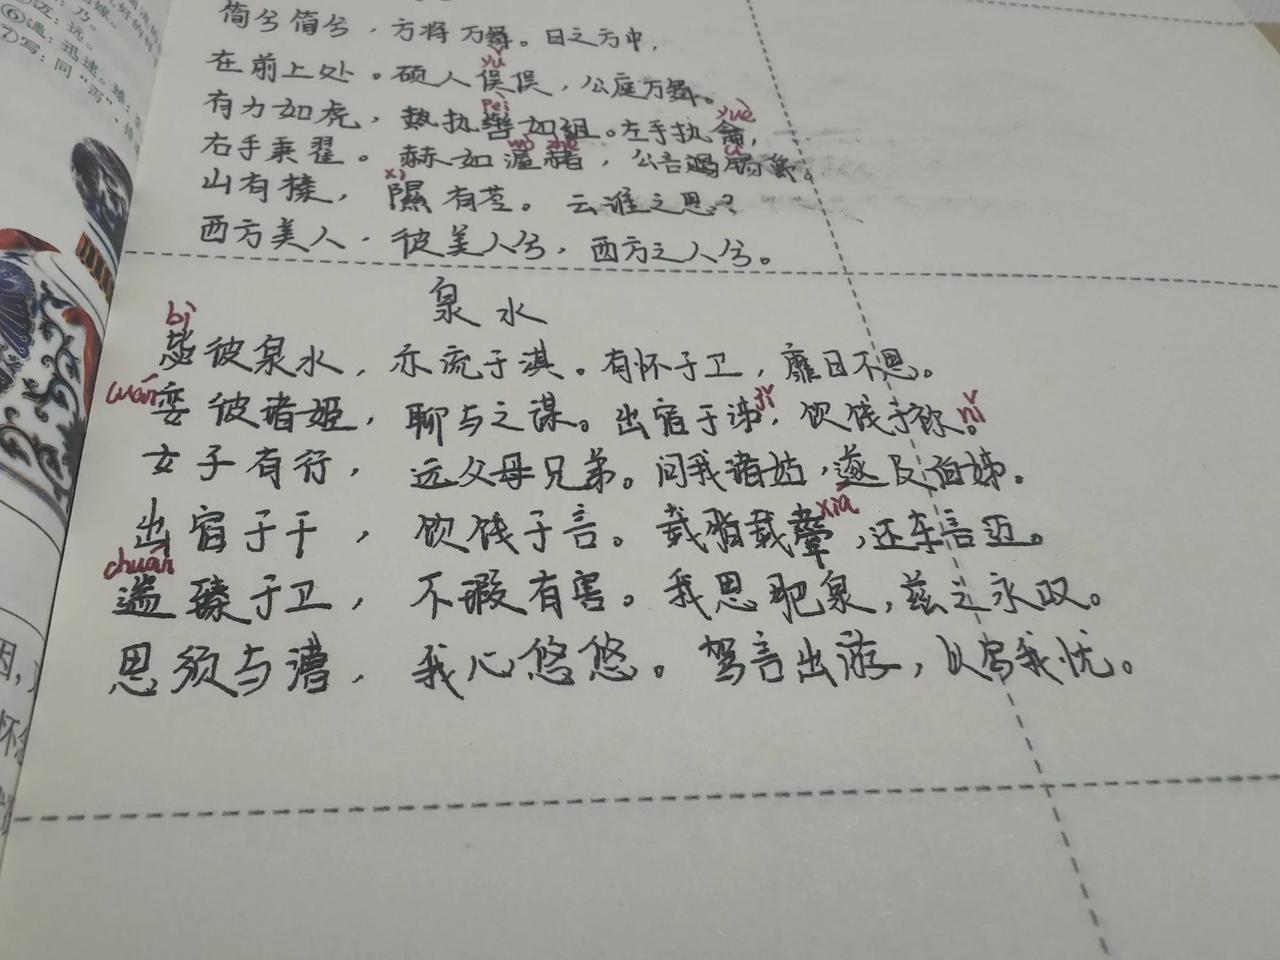 ⑥遄：迅速。臻：至
⑦写：同“泻”，
简兮简兮，方将万舞。日之方中，
在前上处。硕人俣俣，公庭万舞。
yǔ
有力如虎，執执辔如組。左手执龠，
pèi
yuè
右手秉翟。赫如渥赭，公言锡爵。
wò zhě
山有榛，隰有苓。云谁之思？
xí
西方美人，彼美人兮，西方之人兮。
泉水
bì
毖彼泉水，亦流于淇。有怀于卫，靡日不思。
luán
娈彼诸姬，聊与之谋。出宿于泲，饮饯于祢。
jǐ
nǐ
女子有行，远父母兄弟。问我诸姑，遂及伯姊。
出宿于干，饮饯于言。载脂载舝，还车言迈。
xiá
chuán
遄臻于卫，不瑕有害。我思肥泉，兹之永叹。
思须与漕，我心悠悠。驾言出游，以写我忧。